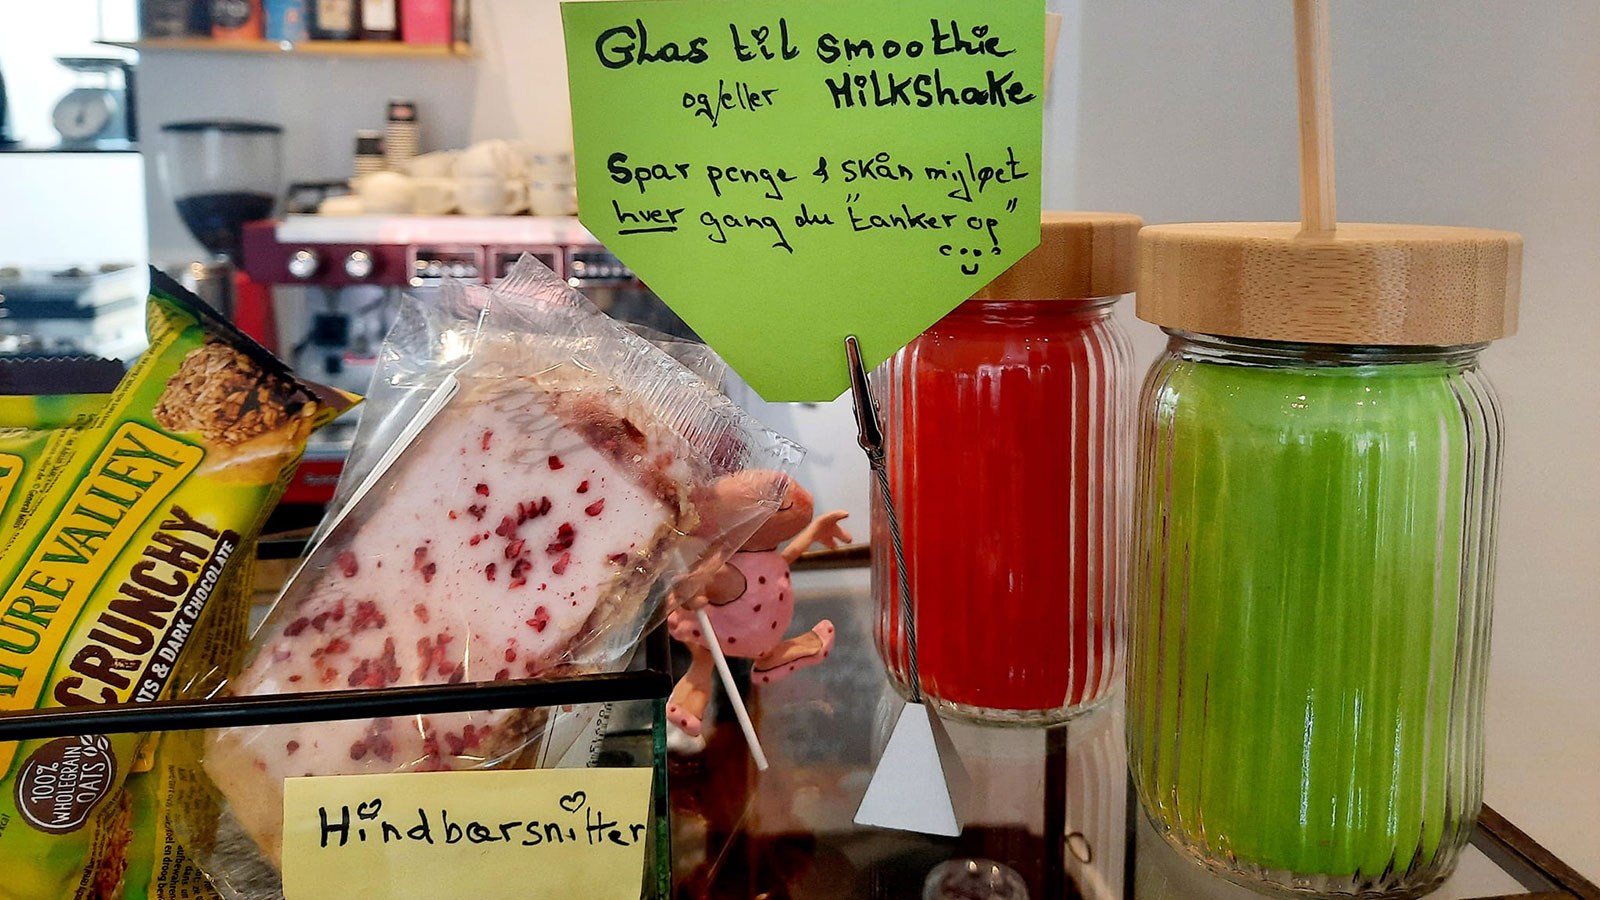 Glas til smoothie
og/eller MILKShake
Spar penge & skån miljøet
hver gang du "tanker op"
NATURE VALLEY
CRUNCHY
OATS & DARK CHOCOLATE
100%
WHOLEGRAIN
OATS
Hindbærsnitter